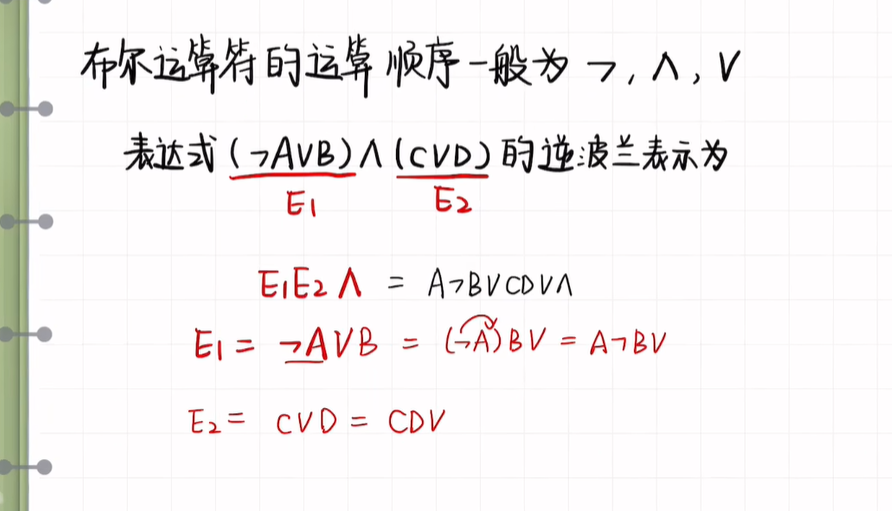 布尔运算符的运算顺序一般为 ¬, ∧, ∨
表达式(¬A∨B)∧(C∨D)的逆波兰表示为
E1 E2
E1E2∧ = A¬B∨CD∨∧
E1 = ¬A∨B = (¬A)B∨ = A¬B∨
E2 = C∨D = CD∨